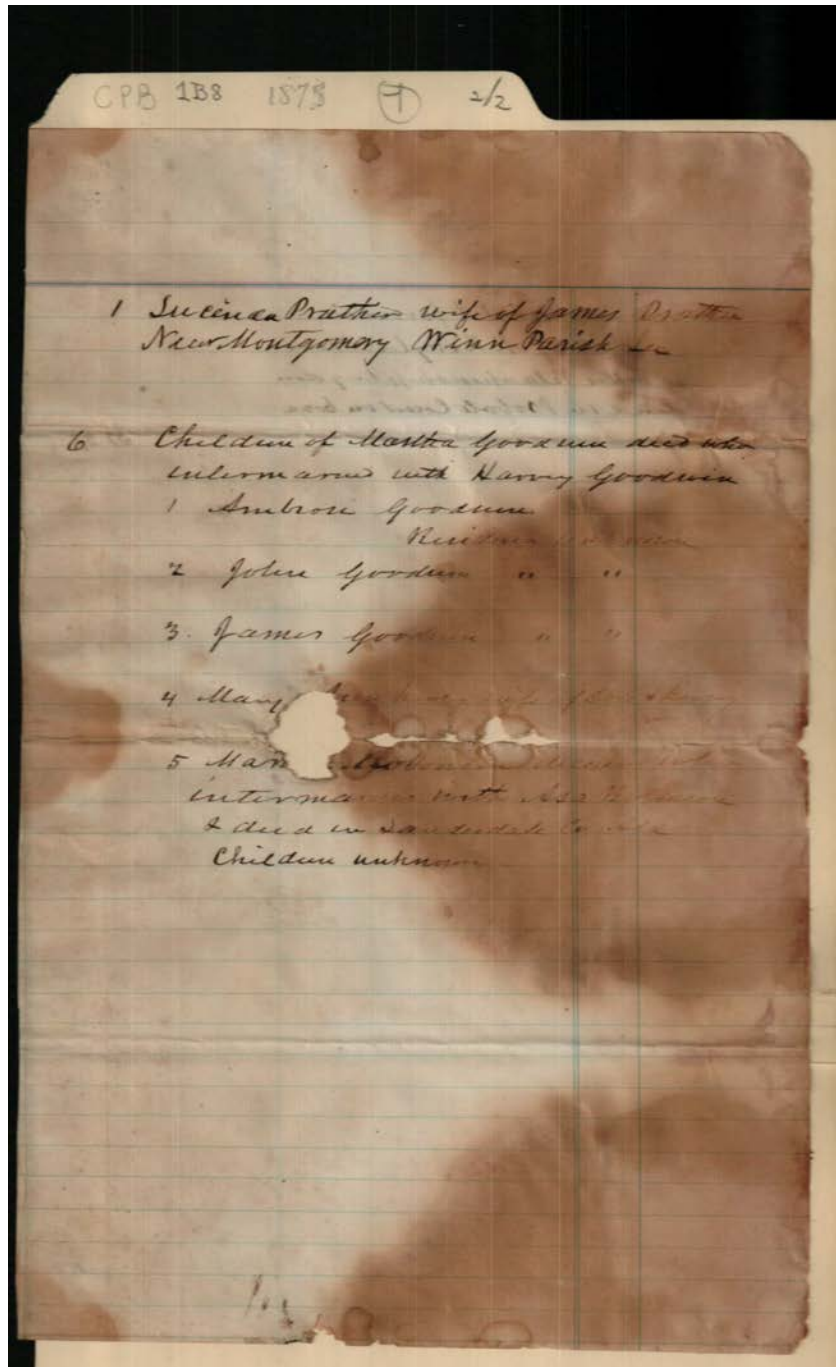 CPB 1B8 1873 T 2/2
1 Lucinda Prather wife of James Prather
Near Montgomery Winn Parish La
6 Children of Martha Goodwin decd who
intermarried with Harvey Goodwin
1 Ambrose Goodwin
Residence unknown
2 John Goodwin " "
3. James Goodwin " "
4 Mary wife of
5
intermarried with Asa
& died in Lauderdale Co Ala
Children unknown